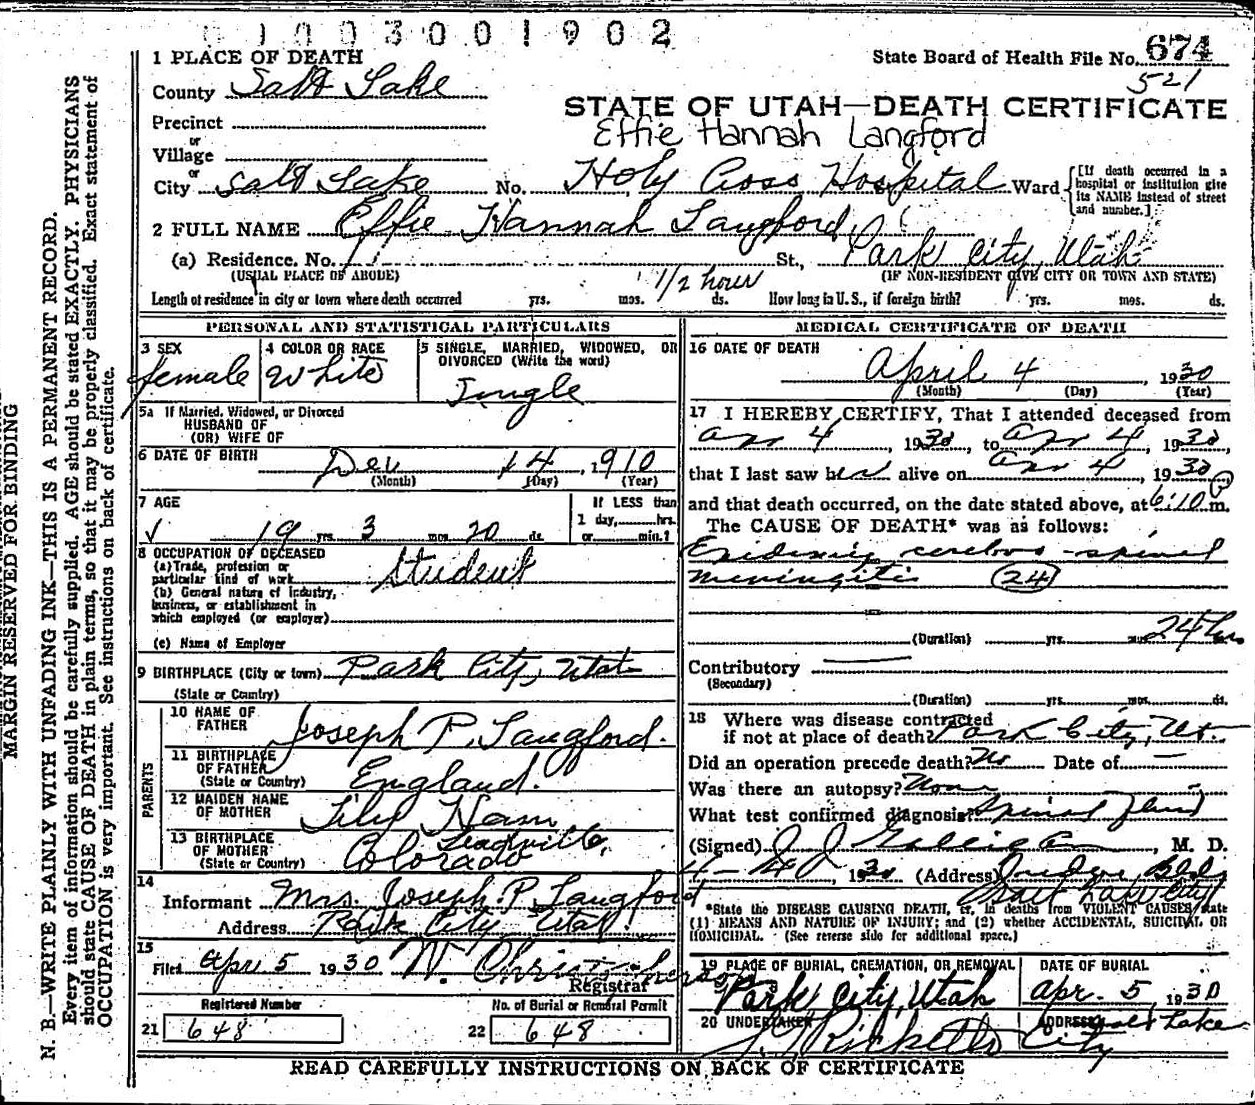 1003001902
1 PLACE OF DEATH
State Board of Health File No. 674
521
County Salt Lake
STATE OF UTAH—DEATH CERTIFICATE
Effie Hannah Langford
Precinct
or
Village
or
City Salt Lake No. Holy Cross Hospital Ward [If death occurred in a hospital or institution give its NAME instead of street and number.]
2 FULL NAME Effie Hannah Langford
(a) Residence. No. St., Park City, Utah
(USUAL PLACE OF ABODE) (IF NON-RESIDENT GIVE CITY OR TOWN AND STATE)
Length of residence in city or town where death occurred yrs. mos. 1/2 hour ds. How long in U.S., if foreign birth? yrs. mos. ds.
PERSONAL AND STATISTICAL PARTICULARS
3 SEX
female
4 COLOR OR RACE
White
5 SINGLE, MARRIED, WIDOWED, OR DIVORCED (Write the word)
Single
5a If Married, Widowed, or Divorced
HUSBAND OF
(OR) WIFE OF
6 DATE OF BIRTH Dec 14, 1910
(Month) (Day) (Year)
7 AGE
19 yrs. 3 mos. 20 ds.
If LESS than
1 day, hrs.
or min.?
8 OCCUPATION OF DECEASED
(a) Trade, profession or
particular kind of work Student
(b) General nature of industry,
business, or establishment in
which employed (or employer)
(c) Name of Employer
9 BIRTHPLACE (City or town) Park City, Utah
(State or Country)
PARENTS
10 NAME OF
FATHER Joseph P. Langford.
11 BIRTHPLACE
OF FATHER England.
(State or Country)
12 MAIDEN NAME
OF MOTHER Lily Ham
13 BIRTHPLACE
OF MOTHER Leadville,
(State or Country) Colorado
14
Informant Mrs. Joseph P. Langford
Address Park City Utah.
15
Filed Apr 5 1930 W. Christopherson
Registrar
Registered Number
21 648
No. of Burial or Removal Permit
22 648
MEDICAL CERTIFICATE OF DEATH
16 DATE OF DEATH
April 4, 1930
(Month) (Day) (Year)
17 I HEREBY CERTIFY, That I attended deceased from
Apr 4 1930, to Apr 4, 1930,
that I last saw her alive on Apr 4, 1930
and that death occurred, on the date stated above, at 6:10 P m.
The CAUSE OF DEATH* was as follows:
Epidemic cerebro-spinal
meningitis (24)
(Duration) yrs. mos. 24 hrs
Contributory
(Secondary)
(Duration) yrs. mos. ds.
18 Where was disease contracted
if not at place of death? Park City, Ut.
Did an operation precede death? No Date of —
Was there an autopsy? None
What test confirmed diagnosis? Spinal fluid
(Signed) J J Galligan, M. D.
4-4, 1930 (Address) Judge Bldg
Salt Lake City
*State the DISEASE CAUSING DEATH, or, in deaths from VIOLENT CAUSES, state
(1) MEANS AND NATURE OF INJURY; and (2) whether ACCIDENTAL, SUICIDAL OR
HOMICIDAL. (See reverse side for additional space.)
19 PLACE OF BURIAL, CREMATION, OR REMOVAL
Park City, Utah
DATE OF BURIAL
Apr. 5, 1930
20 UNDERTAKER
Ricketts
ADDRESS Salt Lake
City
READ CAREFULLY INSTRUCTIONS ON BACK OF CERTIFICATE
MARGIN RESERVED FOR BINDING
N. B.—WRITE PLAINLY WITH UNFADING INK—THIS IS A PERMANENT RECORD.
Every item of information should be carefully supplied. AGE should be stated EXACTLY. PHYSICIANS
should state CAUSE OF DEATH in plain terms, so that it may be properly classified. Exact statement of
OCCUPATION is very important. See instructions on back of certificate.